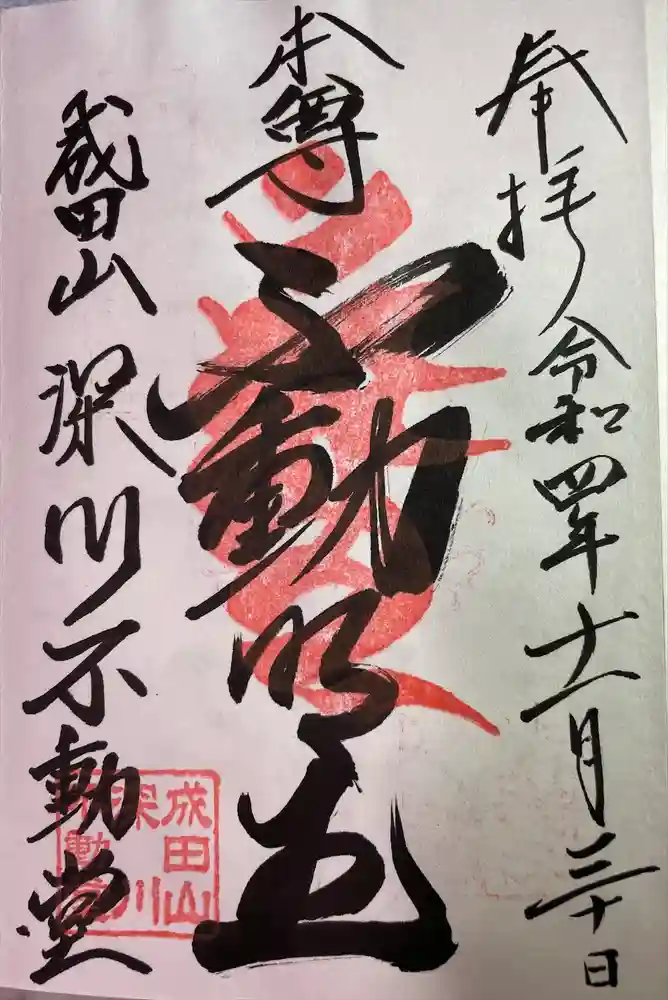 奉拝 令和四年十一月三十日
本尊
不動明王
成田山 深川不動堂
成田山
深川
不動堂